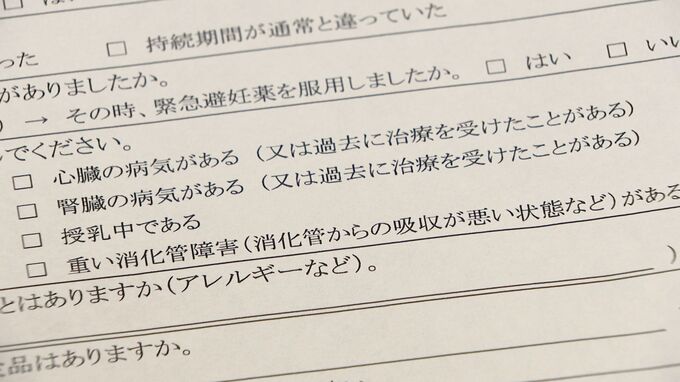 はい
った □ 持続期間が通常と違っていた
がありましたか。
) → その時、緊急避妊薬を服用しましたか。 □ はい □ いい
でください。
□ 心臓の病気がある (又は過去に治療を受けたことがある)
□ 腎臓の病気がある (又は過去に治療を受けたことがある)
□ 授乳中である
□ 重い消化管障害(消化管からの吸収が悪い状態など)がある
とはありますか(アレルギーなど)。
)
品はありますか。